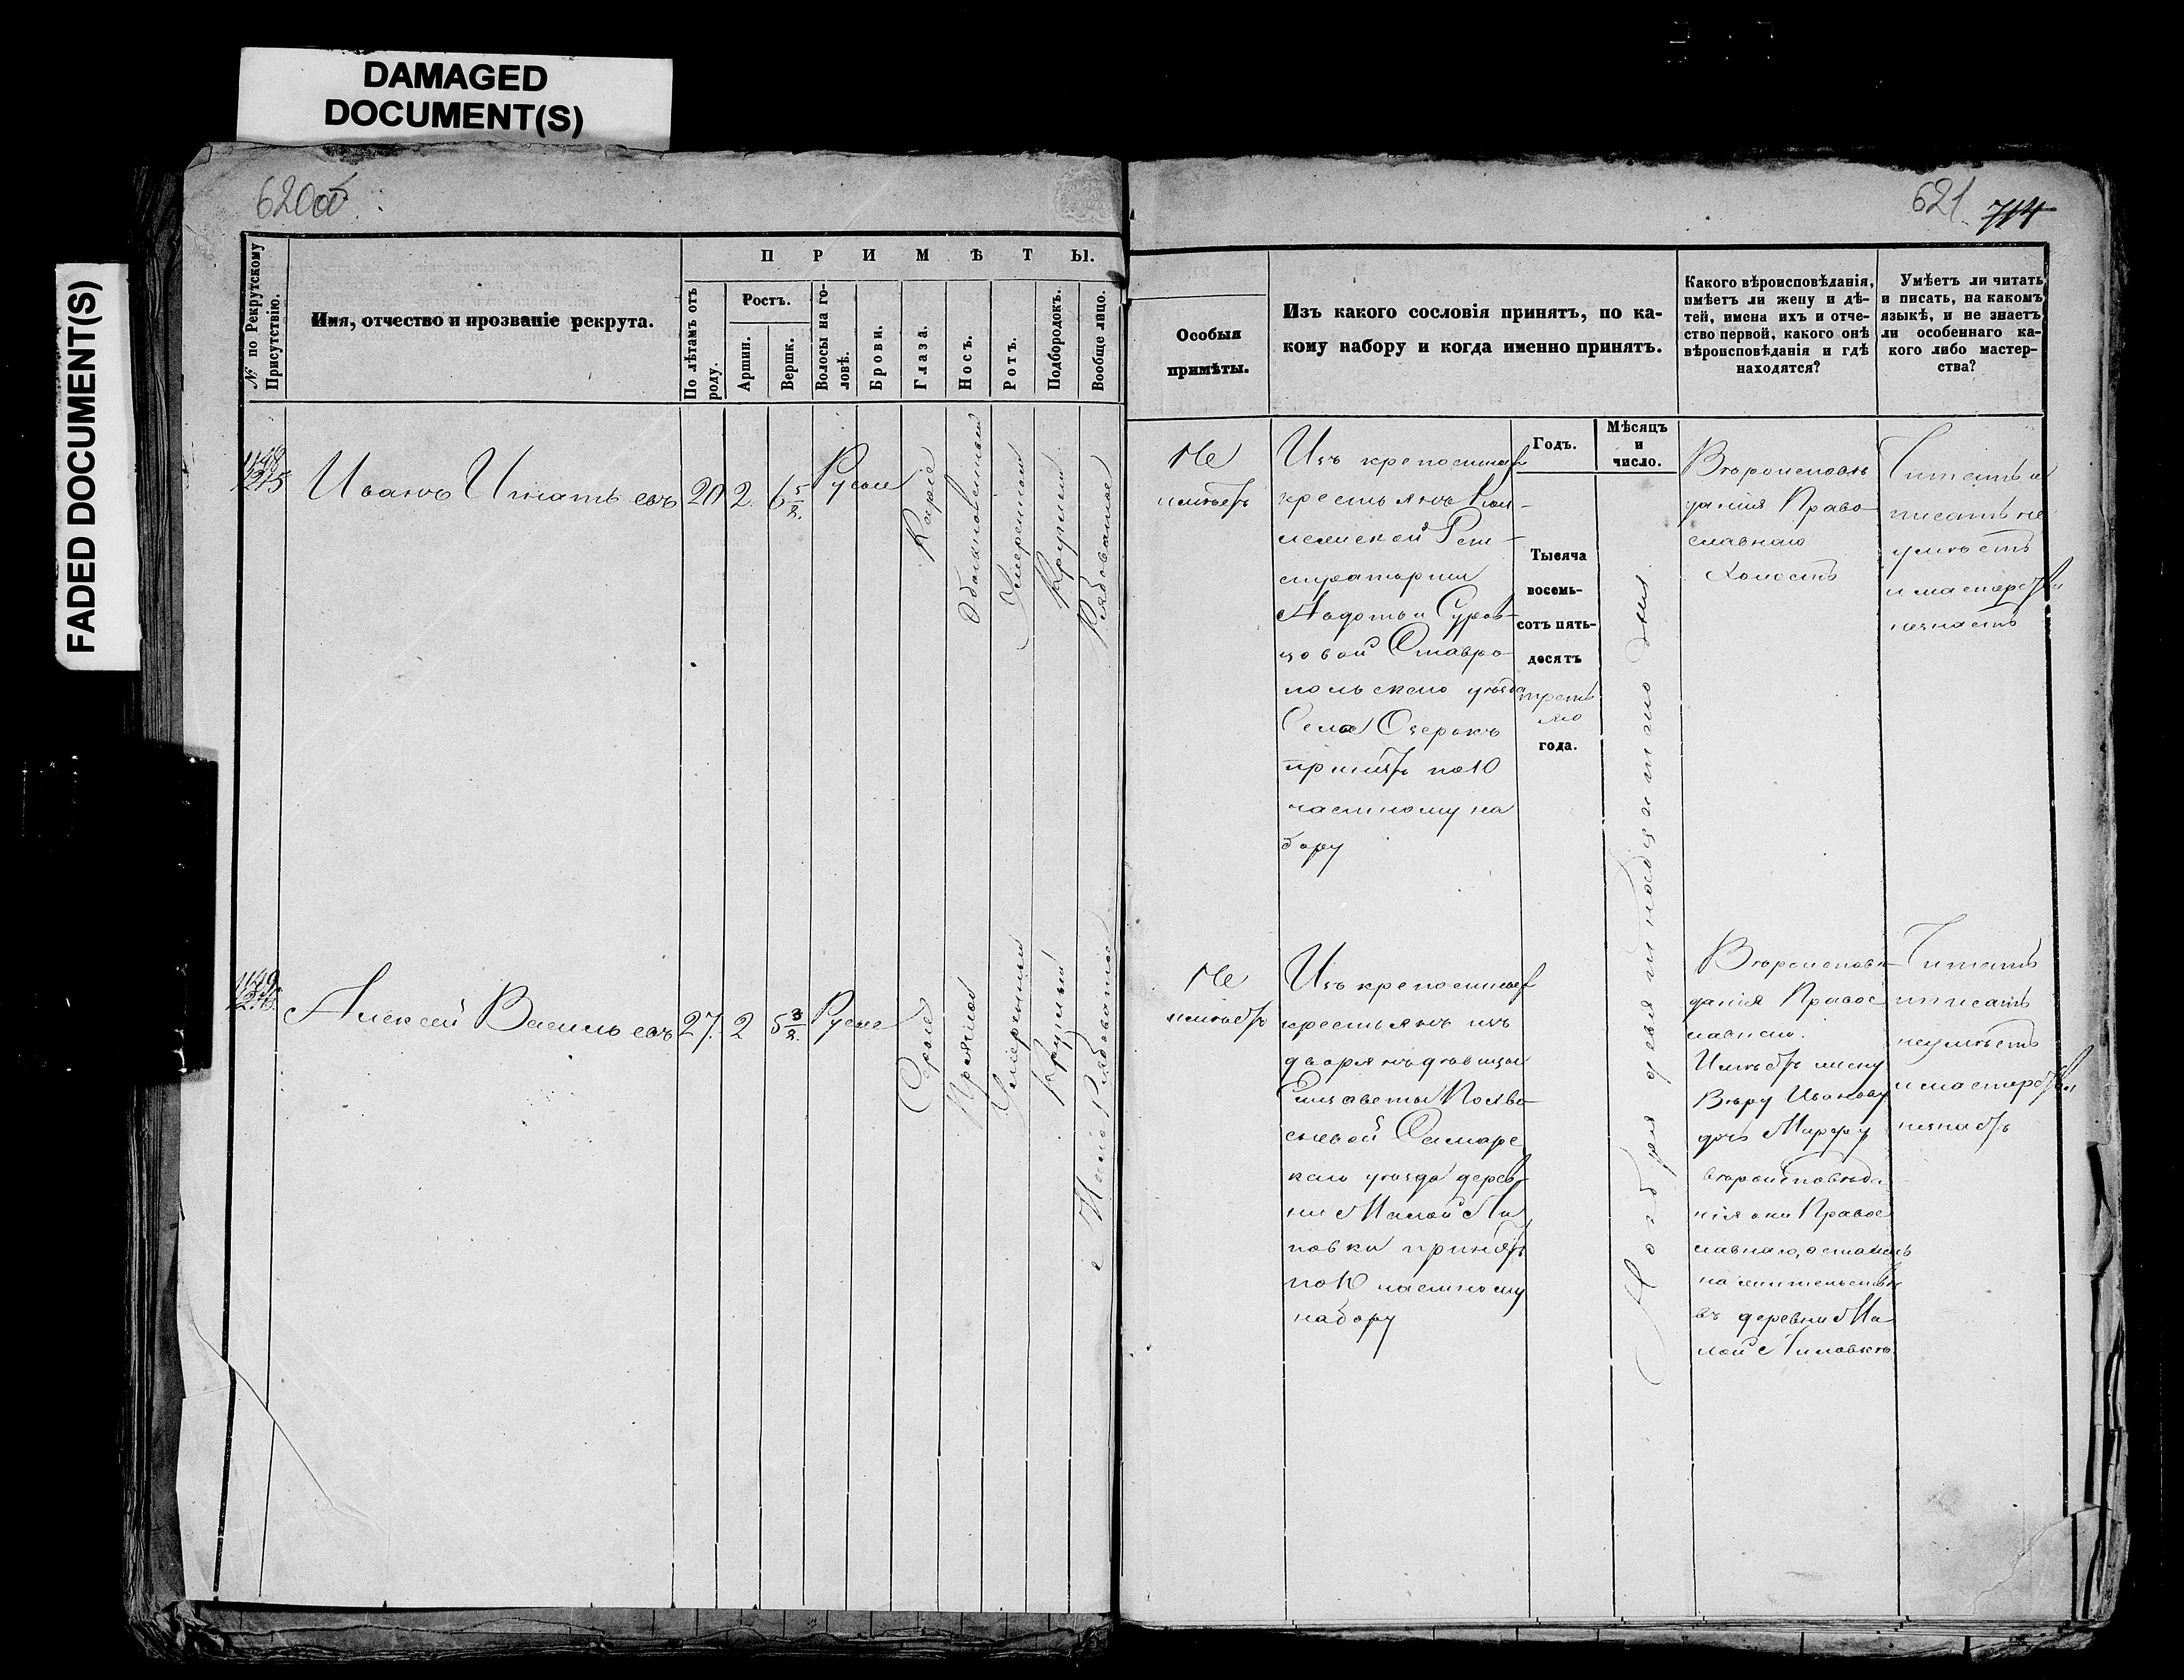 DAMAGED
DOCUMENT(S)
FADED DOCUMENT(S)
620об
621 714
№ по Рекрутскому
Присутствію.
Имя, отчество и прозваніе рекрута.
П Р И М Ѣ Т Ы.
По лѣтамъ отъ
роду.
Ростъ.
Аршин.
Вершк.
Волосы на го-
ловѣ.
Брови.
Глаза.
Носъ.
Ротъ.
Подбородокъ.
Вообще лицо.
Особыя
примѣты.
Изъ какого сословія принятъ, по ка-
кому набору и когда именно принятъ.
Какого вѣроисповѣданія,
имѣетъ ли жену и дѣ-
тей, имена ихъ и отче-
ство первой, какого онѣ
вѣроисповѣданія и гдѣ
находятся?
Умѣетъ ли читать
и писать, на какомъ
языкѣ, и не знаетъ
ли особеннаго ка-
кого либо мастер-
ства?
Годъ.
Мѣсяцъ
и
число.
1148
1215
Иванъ Игнатьевъ
20
2.
6 5/8.
Русые
Каріе
Обыкновенный
Умеренный
Круглый
Рябоватое
Не
имѣетъ
Изъ крепостных
крестьянъ Кол-
лежской Реги-
страторши
Авдотьи Суров-
цовой Ставро-
польскаго уѣзда
Села Озерокъ
принятъ по 10
частному на
бору
Тысяча
восемь-
сотъ пять-
десятъ
треть
яго
года.
Ноября девятнадцатого дня
Вѣроисповѣ
данія Право
славнаго
Холостъ
Читать и
писать не
умѣетъ
и мастерства
незнаетъ
1149
Алексей Васильевъ
27.
2
5 3/8.
Русые
Серые
Прямой
Умеренный
Круглый
Мало Рябоватое
Не
имѣетъ
Изъ крепостных
крестьянъ изъ
дворянъ девицы
Елизаветы
Самарс
каго уѣзда дерев-
ни Малой Ли
повки принятъ
по 10 частному
набору
Вѣроисповѣ
данія Правос
лавнаго.
Имѣетъ жену
Вѣру Иванову
дочь Марфу
вѣроисповѣда
нія они Правос
лавнаго, остались
на жительствѣ
въ деревни Ма
лой Липовкѣ.
Читать
и писать
неумѣетъ
и мастерства
незнаетъ